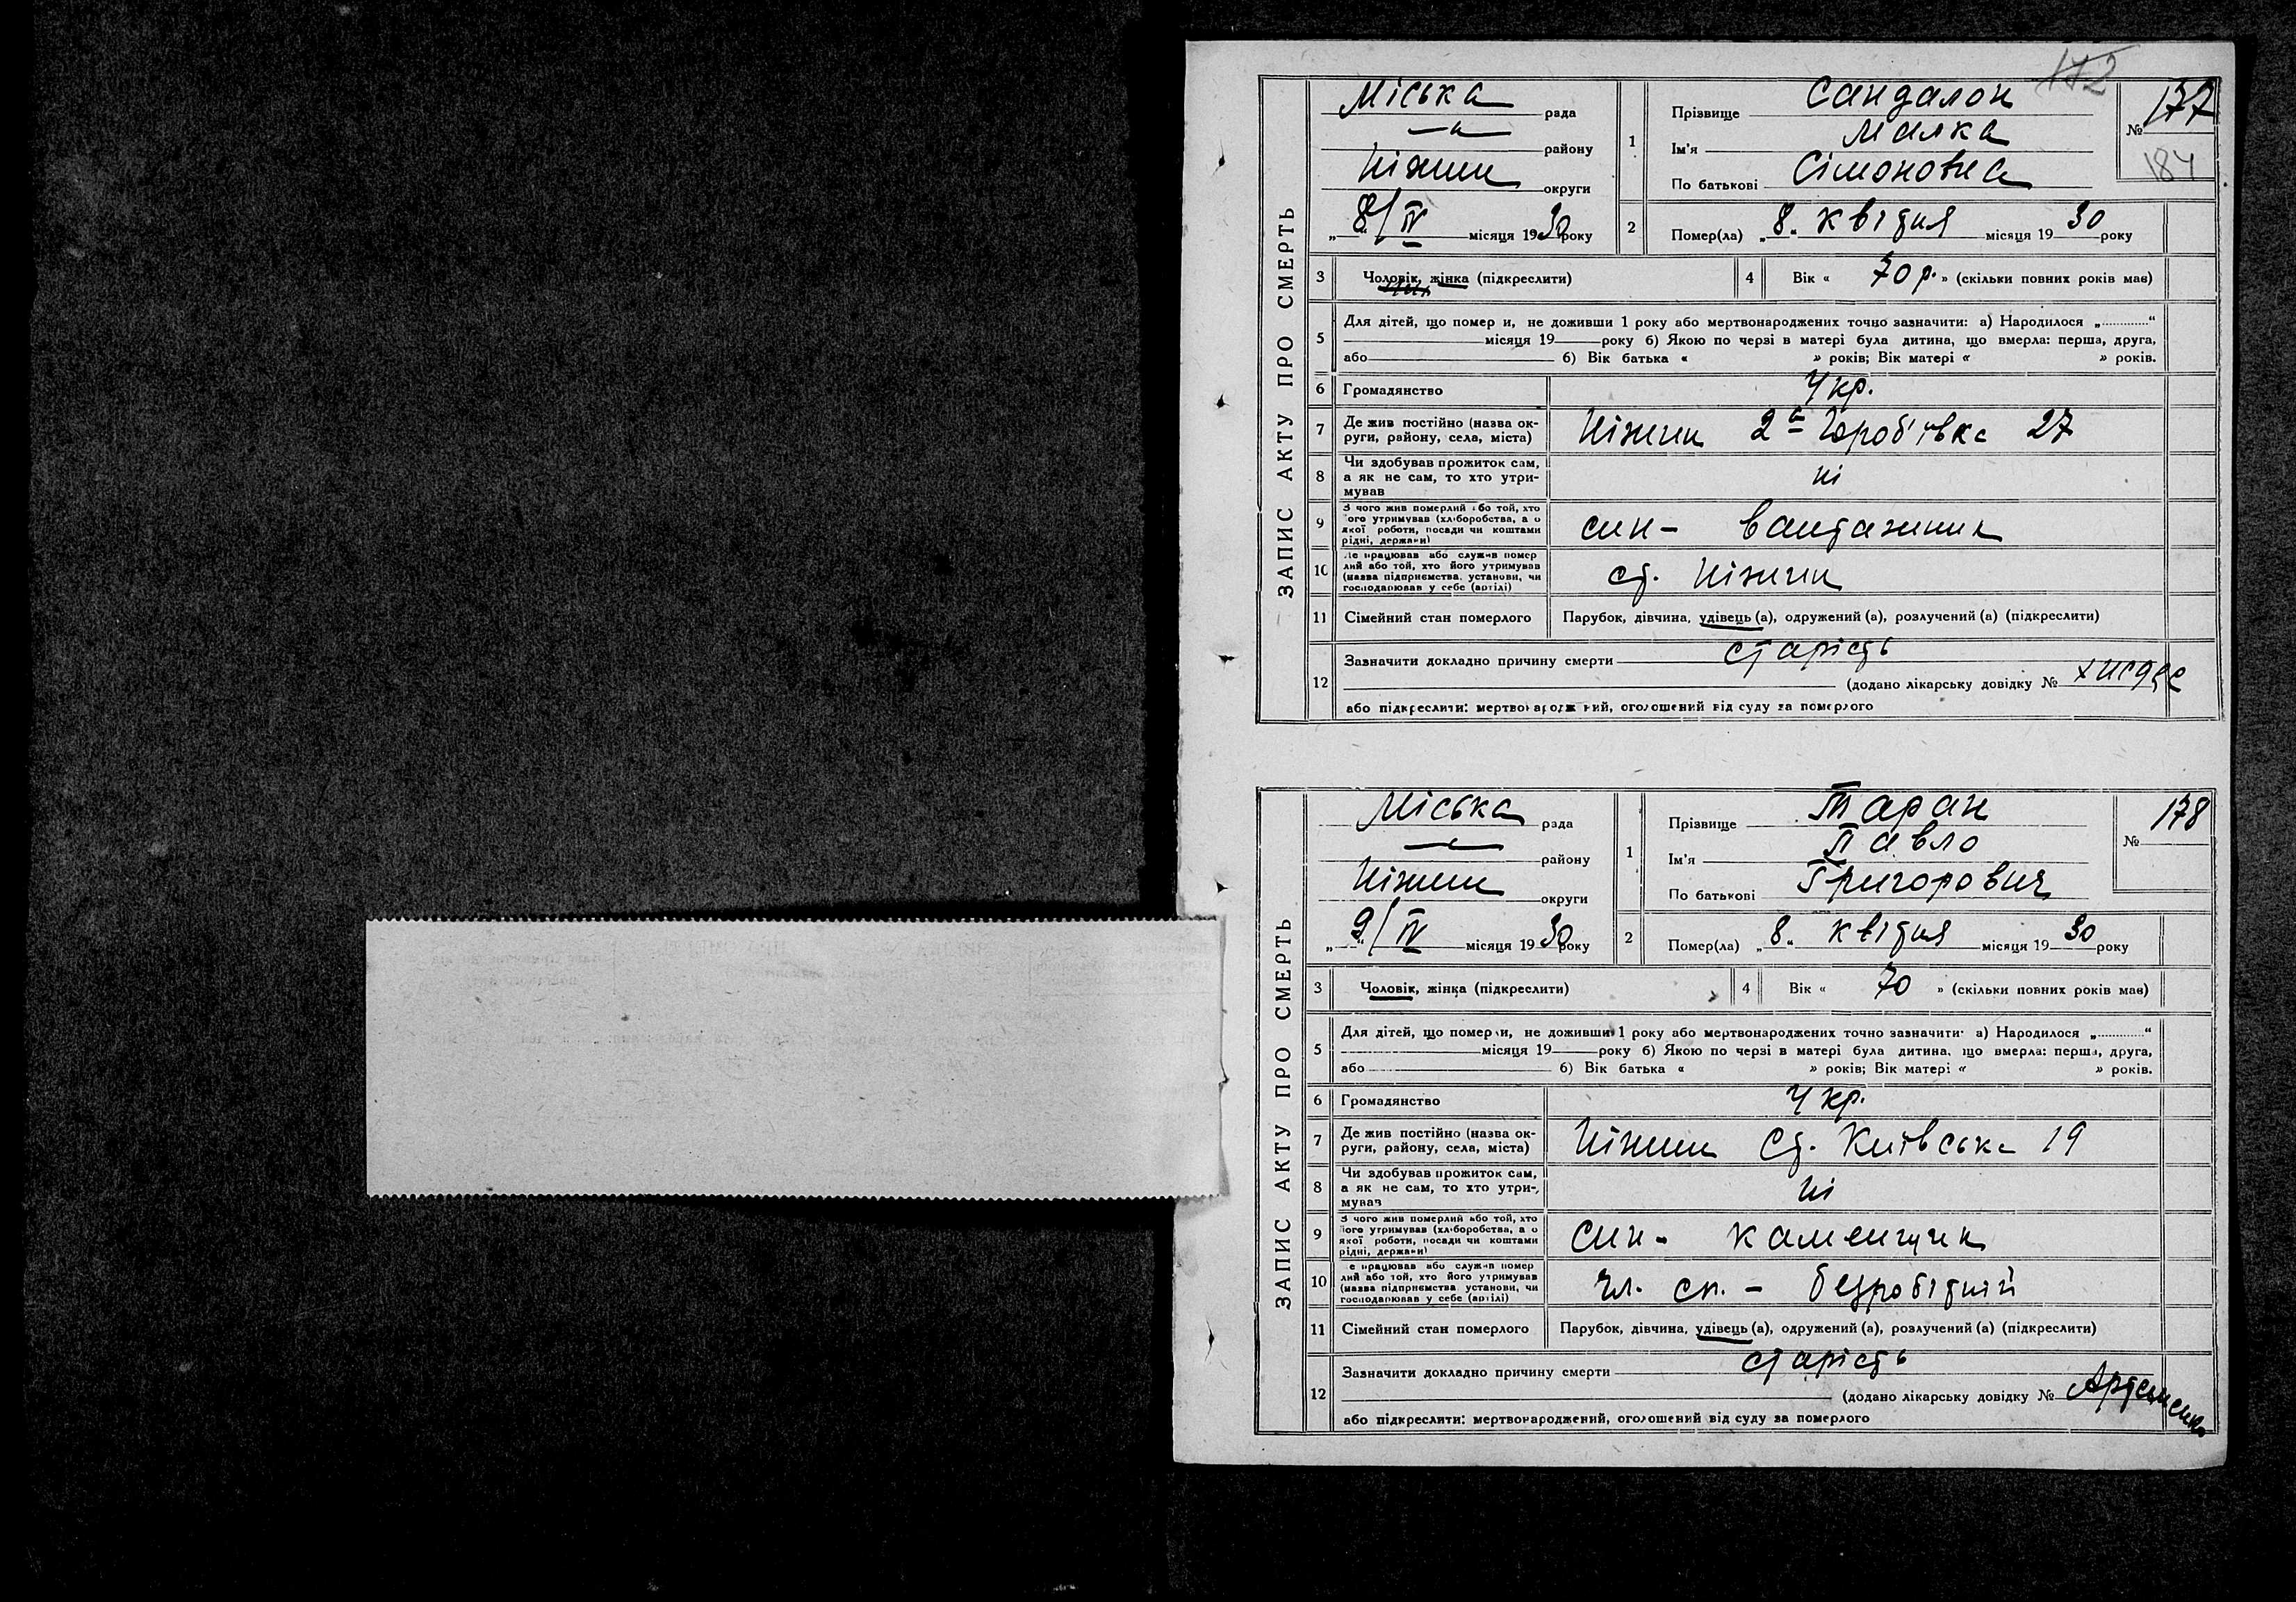 172
ЗАПИС АКТУ ПРО СМЕРТЬ
Міська рада
району
Ніжин округи
„8/IV“ місяця 1930 року
1 Прізвище Сандалон
Ім'я Малка
По батькові Сімоновна
№ 177
184
2 Помер(ла) „8“ квітня місяця 1930 року
3 Чоловік, жінка (підкреслити)
4 Вік « 70 р. » (скільки повних років мав)
5 Для дітей, що померли, не доживши 1 року або мертвонароджених точно зазначити: а) Народилося „............“
місяця 19 року б) Якою по черзі в матері була дитина, що вмерла: перша, друга,
або б) Вік батька « » років; Вік матері « » років.
6 Громадянство Укр.
7 Де жив постійно (назва округи, району, села, міста) Ніжин 2а 27
8 Чи здобував прожиток сам, а як не сам, то хто утримував ні
9 З чого жив померлий або той, хто його утримував (хліборобства, а о якої роботи, посади чи коштами рідні, держави) син - вантажник
10 Де працював або служив померлий або той, хто його утримував (назва підприємства, установи, чи господарював у себе (артілі) ст. Ніжин
11 Сімейний стан померлого Парубок, дівчина, удівець (а), одружений (а), розлучений (а) (підкреслити)
12 Зазначити докладно причину смерти старість
(додано лікарську довідку №
або підкреслити: мертвонароджений, оголошений від суду за померлого
ЗАПИС АКТУ ПРО СМЕРТЬ
Міська рада
району
Ніжин округи
„9/IV“ місяця 1930 року
1 Прізвище Таран
Ім'я Павло
По батькові Григорович
№ 178
2 Помер(ла) „8“ квітня місяця 1930 року
3 Чоловік, жінка (підкреслити)
4 Вік « 70 » (скільки повних років мав)
5 Для дітей, що померли, не доживши 1 року або мертвонароджених точно зазначити: а) Народилося „............“
місяця 19 року б) Якою по черзі в матері була дитина, що вмерла: перша, друга,
або б) Вік батька « » років; Вік матері « » років.
6 Громадянство Укр.
7 Де жив постійно (назва округи, району, села, міста) Ніжин Ст. Київська 19
8 Чи здобував прожиток сам, а як не сам, то хто утримував ні
9 З чого жив померлий або той, хто його утримував (хліборобства, а о якої роботи, посади чи коштами рідні, держави) син - каменщик
10 Де працював або служив померлий або той, хто його утримував (назва підприємства, установи, чи господарював у себе (артілі) чл. сп. - безробітній
11 Сімейний стан померлого Парубок, дівчина, удівець (а), одружений (а), розлучений (а) (підкреслити)
12 Зазначити докладно причину смерти старість
(додано лікарську довідку № Артеменко
або підкреслити: мертвонароджений, оголошений від суду за померлого